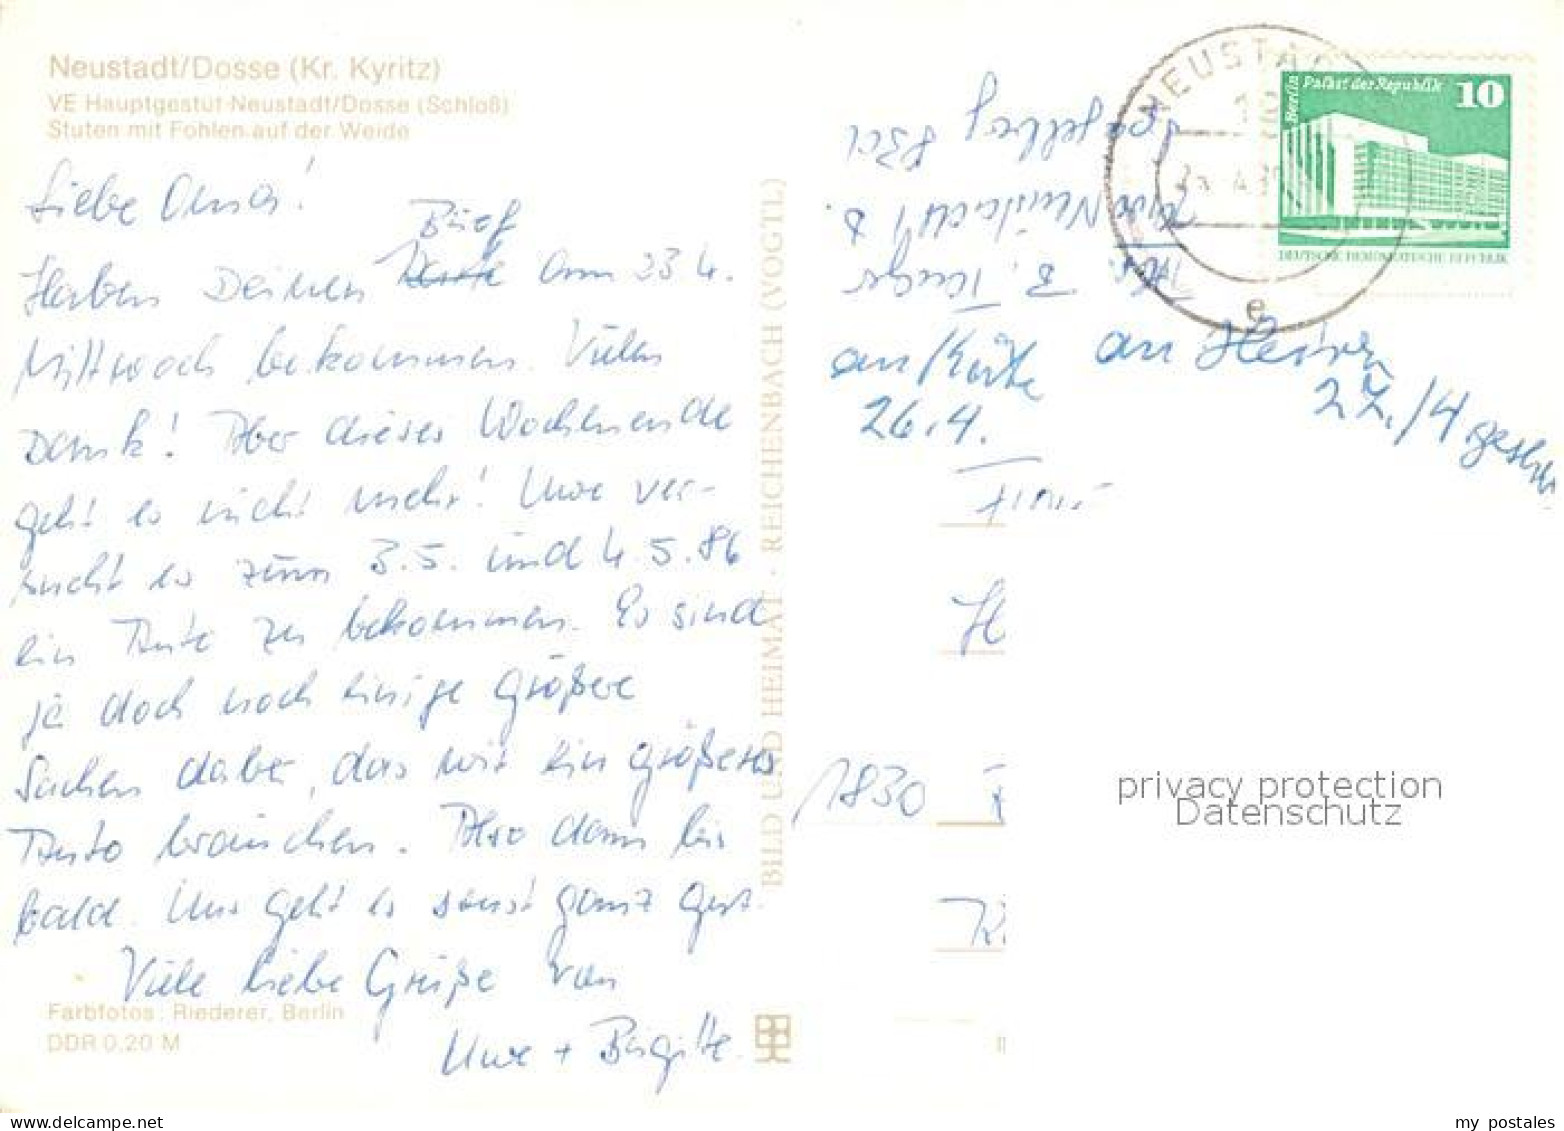 Neustadt/Dosse (Kr. Kyritz)
VE Hauptgestüt Neustadt/Dosse (Schloß)
Stuten mit Fohlen auf der Weide
Liebe Oma!
Brief
Haben Deinen Karte am 23 4.
Mittwoch bekommen. Vielen
Dank! Aber dieses Wochenende
geht es nicht mehr! Uwe ver-
sucht es zum 3.5. und 4.5.86
ein Auto zu bekommen. Es sind
ja doch noch einige größere
Sachen dabei, das wir ein größeres
Auto brauchen. Also dann bis
bald. Uns geht es sonst ganz gut.
Viele liebe Grüße von
Uwe + Birgitte.
Farbfotos: Riederer, Berlin
DDR 0,20 M
BILD UND HEIMAT · REICHENBACH (VOGTL)
Abs. B.
Neustadt/D.
NEUSTAD
e
Berlin Palast der Republik 10
DEUTSCHE DEMOKRATISCHE REPUBLIK
an Käte
26.4.
an Heiner
27./4 geschr
1830
privacy protection
Datenschutz
my postales